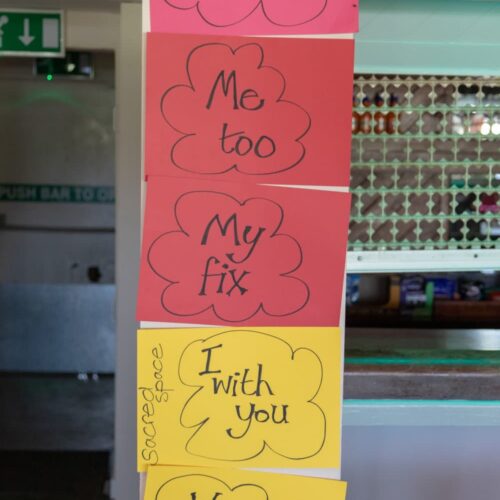 Me
too
My
fix
I
with
you
Sacred
space
PUSH BAR TO